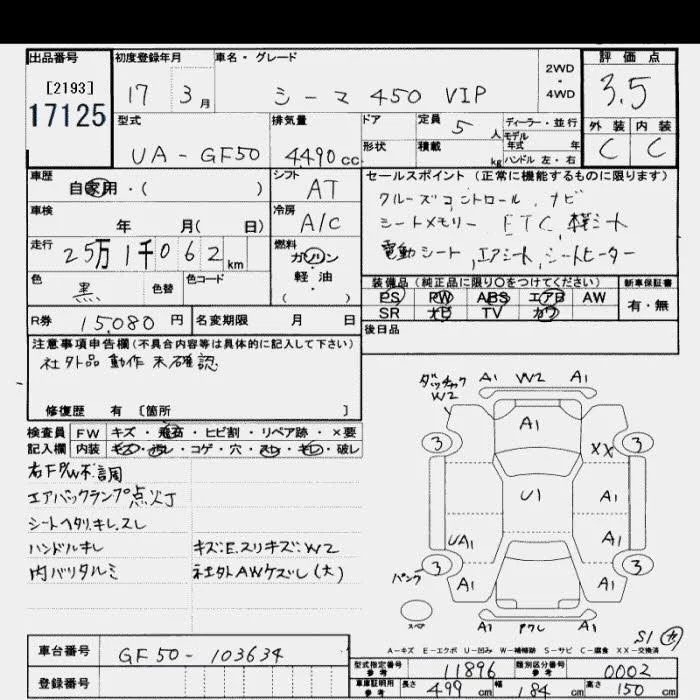 出品番号 初度登録年月 車名・グレード 2WD・4WD 評価点
[2193]
17125
17 3月 シーマ 450 VIP 3.5
型式 排気量 ドア 定員 5人 ディーラー・並行
モデル年式 年
外装 内装
UA-GF50 4,490cc 形状 積載 kg ハンドル 左・右 C C
車歴 シフト セールスポイント (正常に機能するものに限ります)
自家用・( ) AT クルーズコントロール, ナビ
車検 冷房 シートメモリー ETC, 本革シート
年 月( 日) A/C 電動シート, エアシート, シートヒーター
走行 25万1千062km 燃料 ガソリン・軽油 ( )
色 黒 色替 色コード
装備品 (純正品に限り○をつけてください) 新車保証書
PS PW ABS エアB AW 有・無
SR ナビ TV カワ
R券 15,080円 名変期限 月 日 後日品
注意事項申告欄(不具合内容等は具体的に記入して下さい)
社外品動作未確認
修復歴 有 [箇所 ]
検査員 FW キズ・飛石・ヒビ割・リペア跡・×要
記入欄 内装 キズ・汚れ・コゲ・穴・スレ・キレ・破レ
右FP/W不調
エアバックランプ点灯
シートヘタリ.キレ.スレ
ハンドルキレ キズ:E.スリキズ:W2
内バリタルミ 社外AWケズレ(大)
W2
A1 W2 A1
A1
3 3
XX
U1 A1
UA1 A1
パンク 3 3
A1 A1
スペア
A1 A1
S1
A-キズ E-エクボ U-凹み W-補修跡 S-サビ C-腐食 XX-交換済
車台番号 GF50-103634
登録番号
型式指定番号 参考 11896 類別区分番号 参考 0002
車庫証明用 参考 長さ 499cm 幅 184cm 高さ 150cm